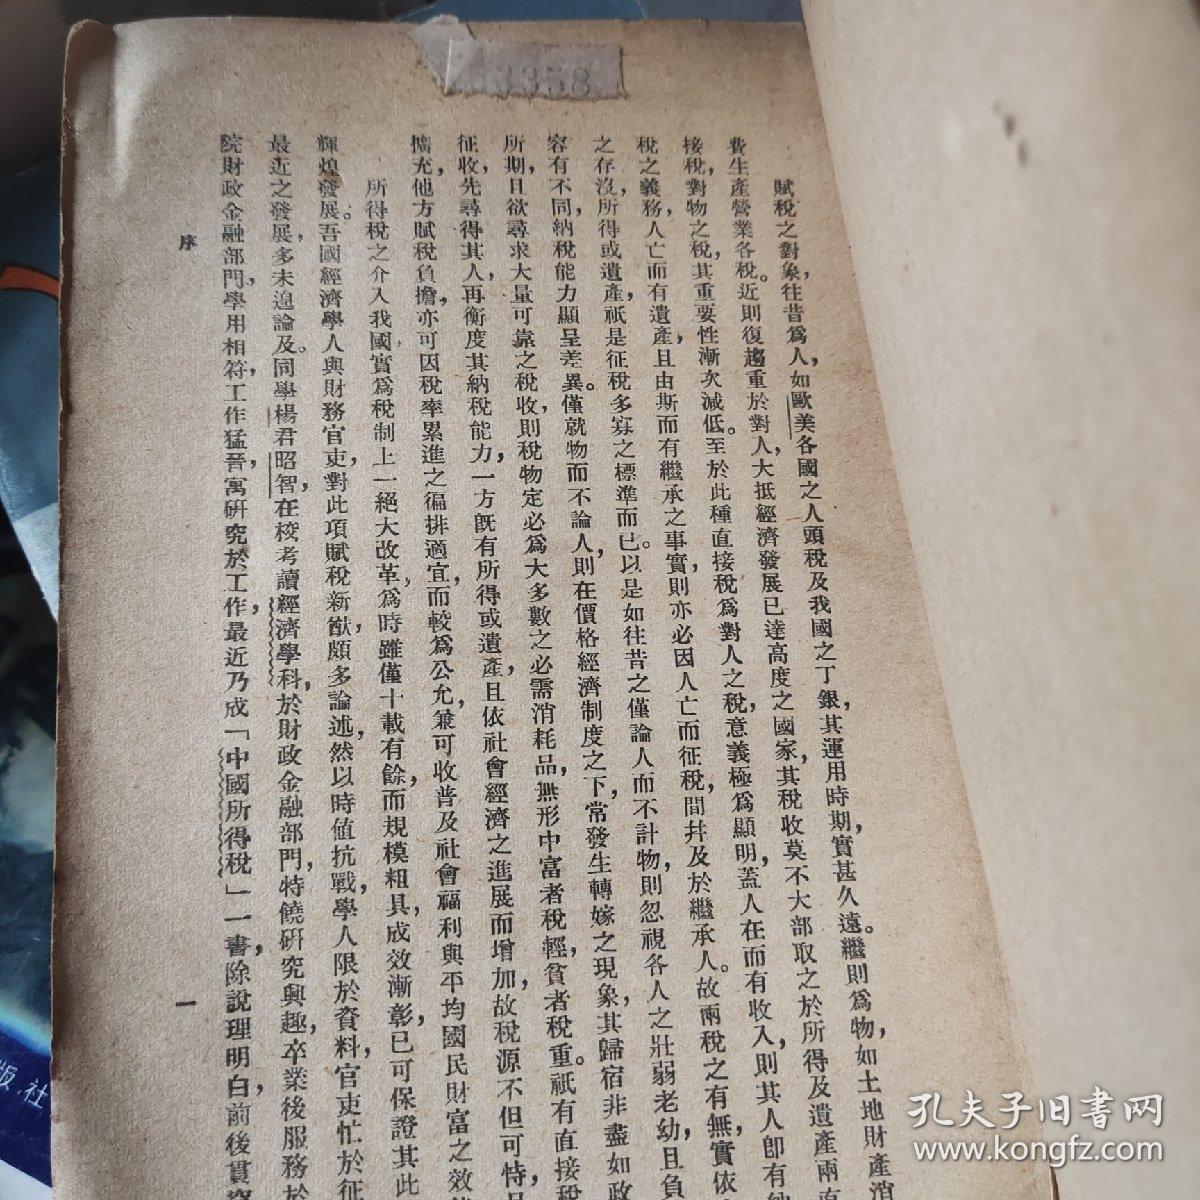 53358
賦稅之對象，往昔爲人，如歐美各國之人頭稅及我國之丁銀，其運用時期，實甚久遠。繼則爲物，如土地財產消
費生產營業各稅。近則復趨重於對人，大抵經濟發展已達高度之國家，其稅收莫不大部取之於所得及遺產兩直
接稅，對物之稅，其重要性漸次減低。至於此種直接稅爲對人之稅，意義極爲顯明，蓋人在而有收入，則其人卽有納
稅之義務，人亡而有遺產，且由斯而有繼承之事實，則亦必因人亡而征稅，間幷及於繼承人。故兩稅之有無，實依
之存沒，所得或遺產，祇是征稅多寡之標準而已。以是如往昔之僅論人而不計物，則忽視各人之壯弱老幼，且負
容有不同，納稅能力顯呈差異。僅就物而不論人，則在價格經濟制度之下，常發生轉嫁之現象，其歸宿非盡如政
所期，且欲尋求大量可靠之稅收，則稅物定必爲大多數之必需消耗品，無形中富者稅輕，貧者稅重。祇有直接稅
征收先尋得其人，再衡度其納稅能力，一方旣有所得或遺產，且依社會經濟之進展而增加，故稅源不但可恃，
擴充他方賦稅負擔，亦可因稅率累進之徧排適宜，而較爲公允，兼可收普及社會福利與平均國民財富之效
所得稅之介入我國，實爲稅制上一絕大改革，爲時雖僅十載有餘，而規模粗具，成效漸彰，已可保證其此
輝煌發展。吾國經濟學人與財務官吏對此項賦稅新猷，頗多論述，然以時値抗戰，學人限於資料，官吏忙於征
最近之發展，多未遑論及。同學楊君昭智，在校考讀經濟學科，於財政金融部門，特饒研究興趣，卒業後服務於
院財政金融部門，學用相符，工作猛晉，寓研究於工作，最近乃成「中國所得稅」一書，除說理明白，前後貫
序
一
版社
孔夫子旧書网
www.kongfz.com